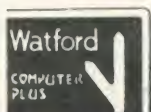 Watford
COMPUTER
PLUS